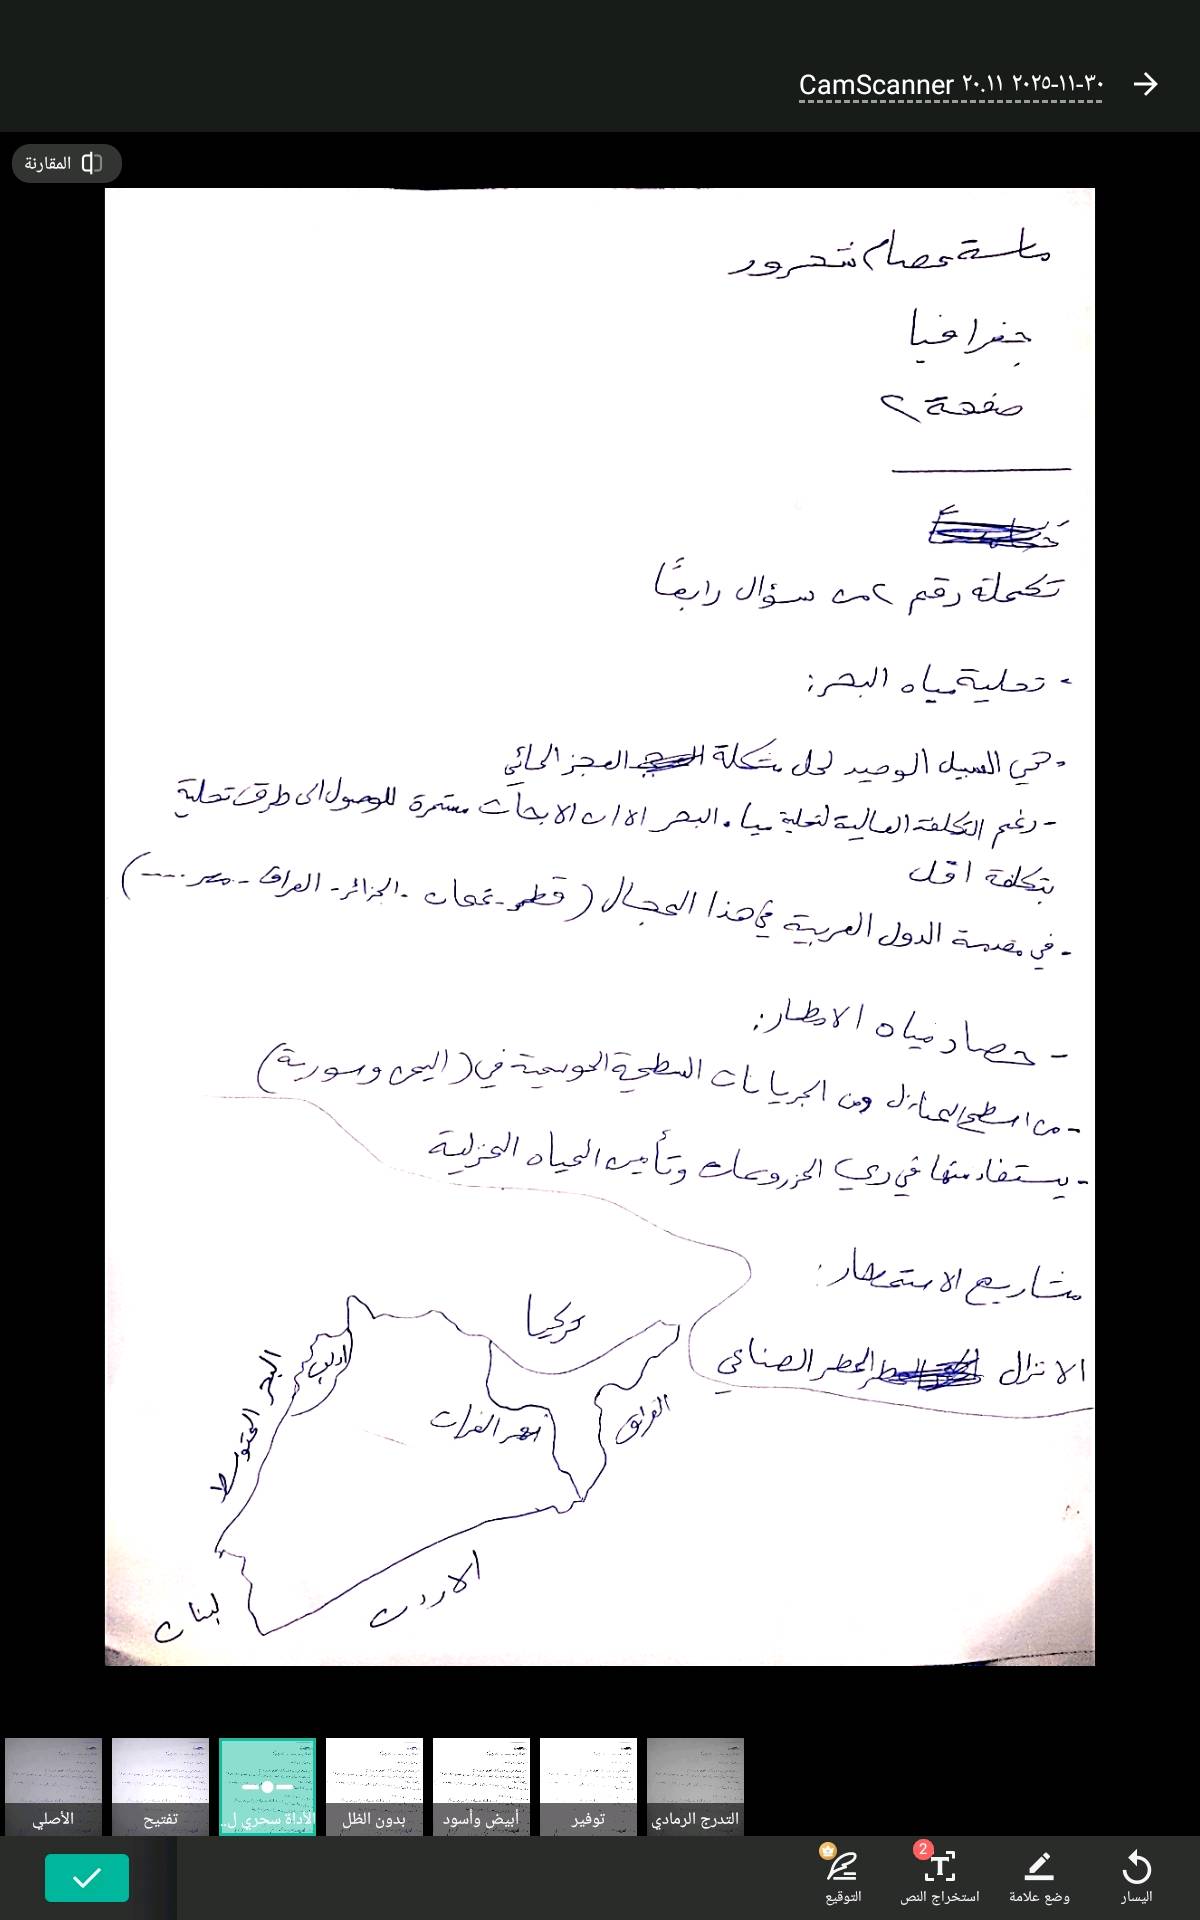 CamScanner ٢٠٢٥-١١-٣٠ ٢٠.١١
المقارنة
ماسة عصام شحرور
جغرافيا
صفحة ٢
تكملة رقم ٢ من سؤال رابعًا
- تحلية مياه البحر:
- هي السبيل الوحيد لحل مشكلة العجز المائي
- رغم التكلفة العالية لتحلية مياه البحر الا ان الابحاث مستمرة للوصول الى طرق تحلية
بتكلفة اقل
- في مقدمة الدول العربية في هذا المجال (قطر - عمان - الجزائر - العراق - مصر ....)
- حصاد مياه الامطار:
- من اسطح المنازل ومن الجريانات السطحية الموسمية في (اليمن وسورية)
- يستفاد منها في ري المزروعات وتأمين المياه المنزلية
مشاريع الاستمطار:
الانزال المطر الصناعي
تركيا
ادلب
البحر المتوسط
نهر الفرات
العراق
الاردن
لبنان
الأصلي
تفتيح
الأداة سحري ل..
بدون الظل
أبيض وأسود
توفير
التدرج الرمادي
التوقيع
2
استخراج النص
وضع علامة
اليسار